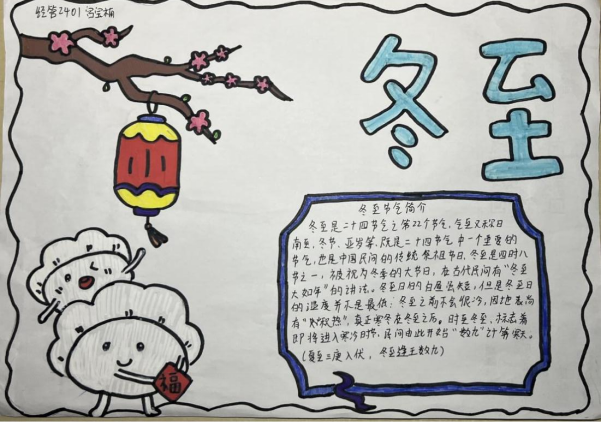 经管2401
冬至
冬至节气简介
冬至是二十四节气之第22个节气,冬至又称日
南至、冬节、亚岁等,既是二十四节气中一个重要的
节气,也是中国民间的传统祭祖节日,冬至是四时八
节之一,被视为冬季的大节日,在古代民间有“冬至
大如年”的讲法。冬至日的白昼虽短,但是冬至日
的温度并不是最低,冬至之前不会很冷,因地表尚
有“积热”,真正寒冬在冬至之后。时至冬至,标志着
即将进入寒冷时节,民间由此开始“数九”计算寒天。
(夏至三庚入伏,冬至逢壬数九)
福